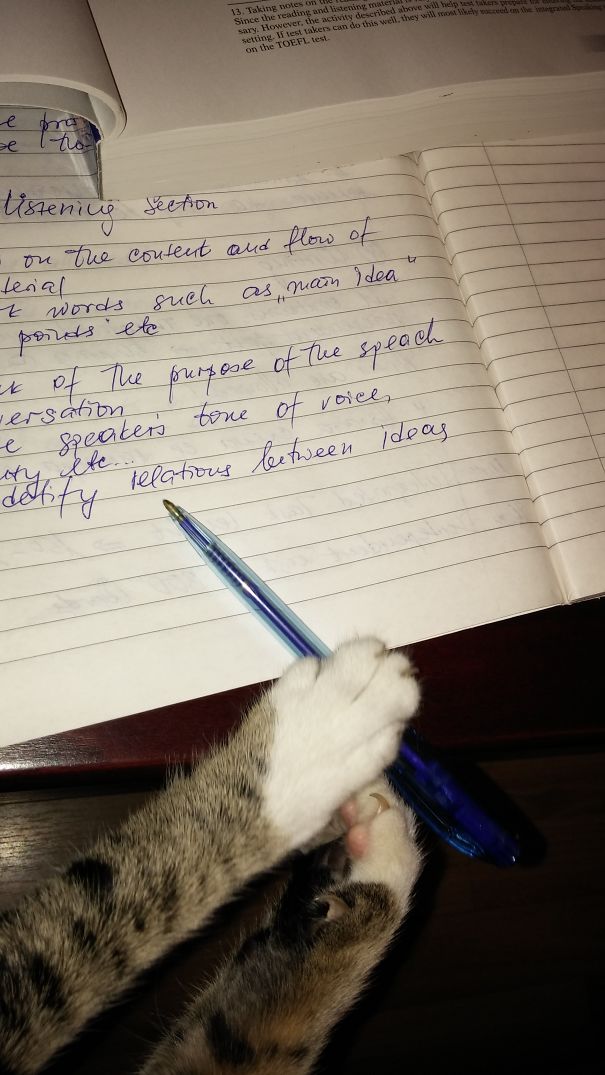 13. Taking notes on the
Since the reading and listening material is
sary. However, the activity described above will help test takers prepare for
setting. If test takers can do this well, they will most likely succeed on the integrated Speaking
on the TOEFL test.
e pro
e
Listening Section
on the content and flow of
terial
words such as „main idea"
points etc
of the purpose of the speach
versation
e speaker's tone of voice,
etc...
detify relations between ideas